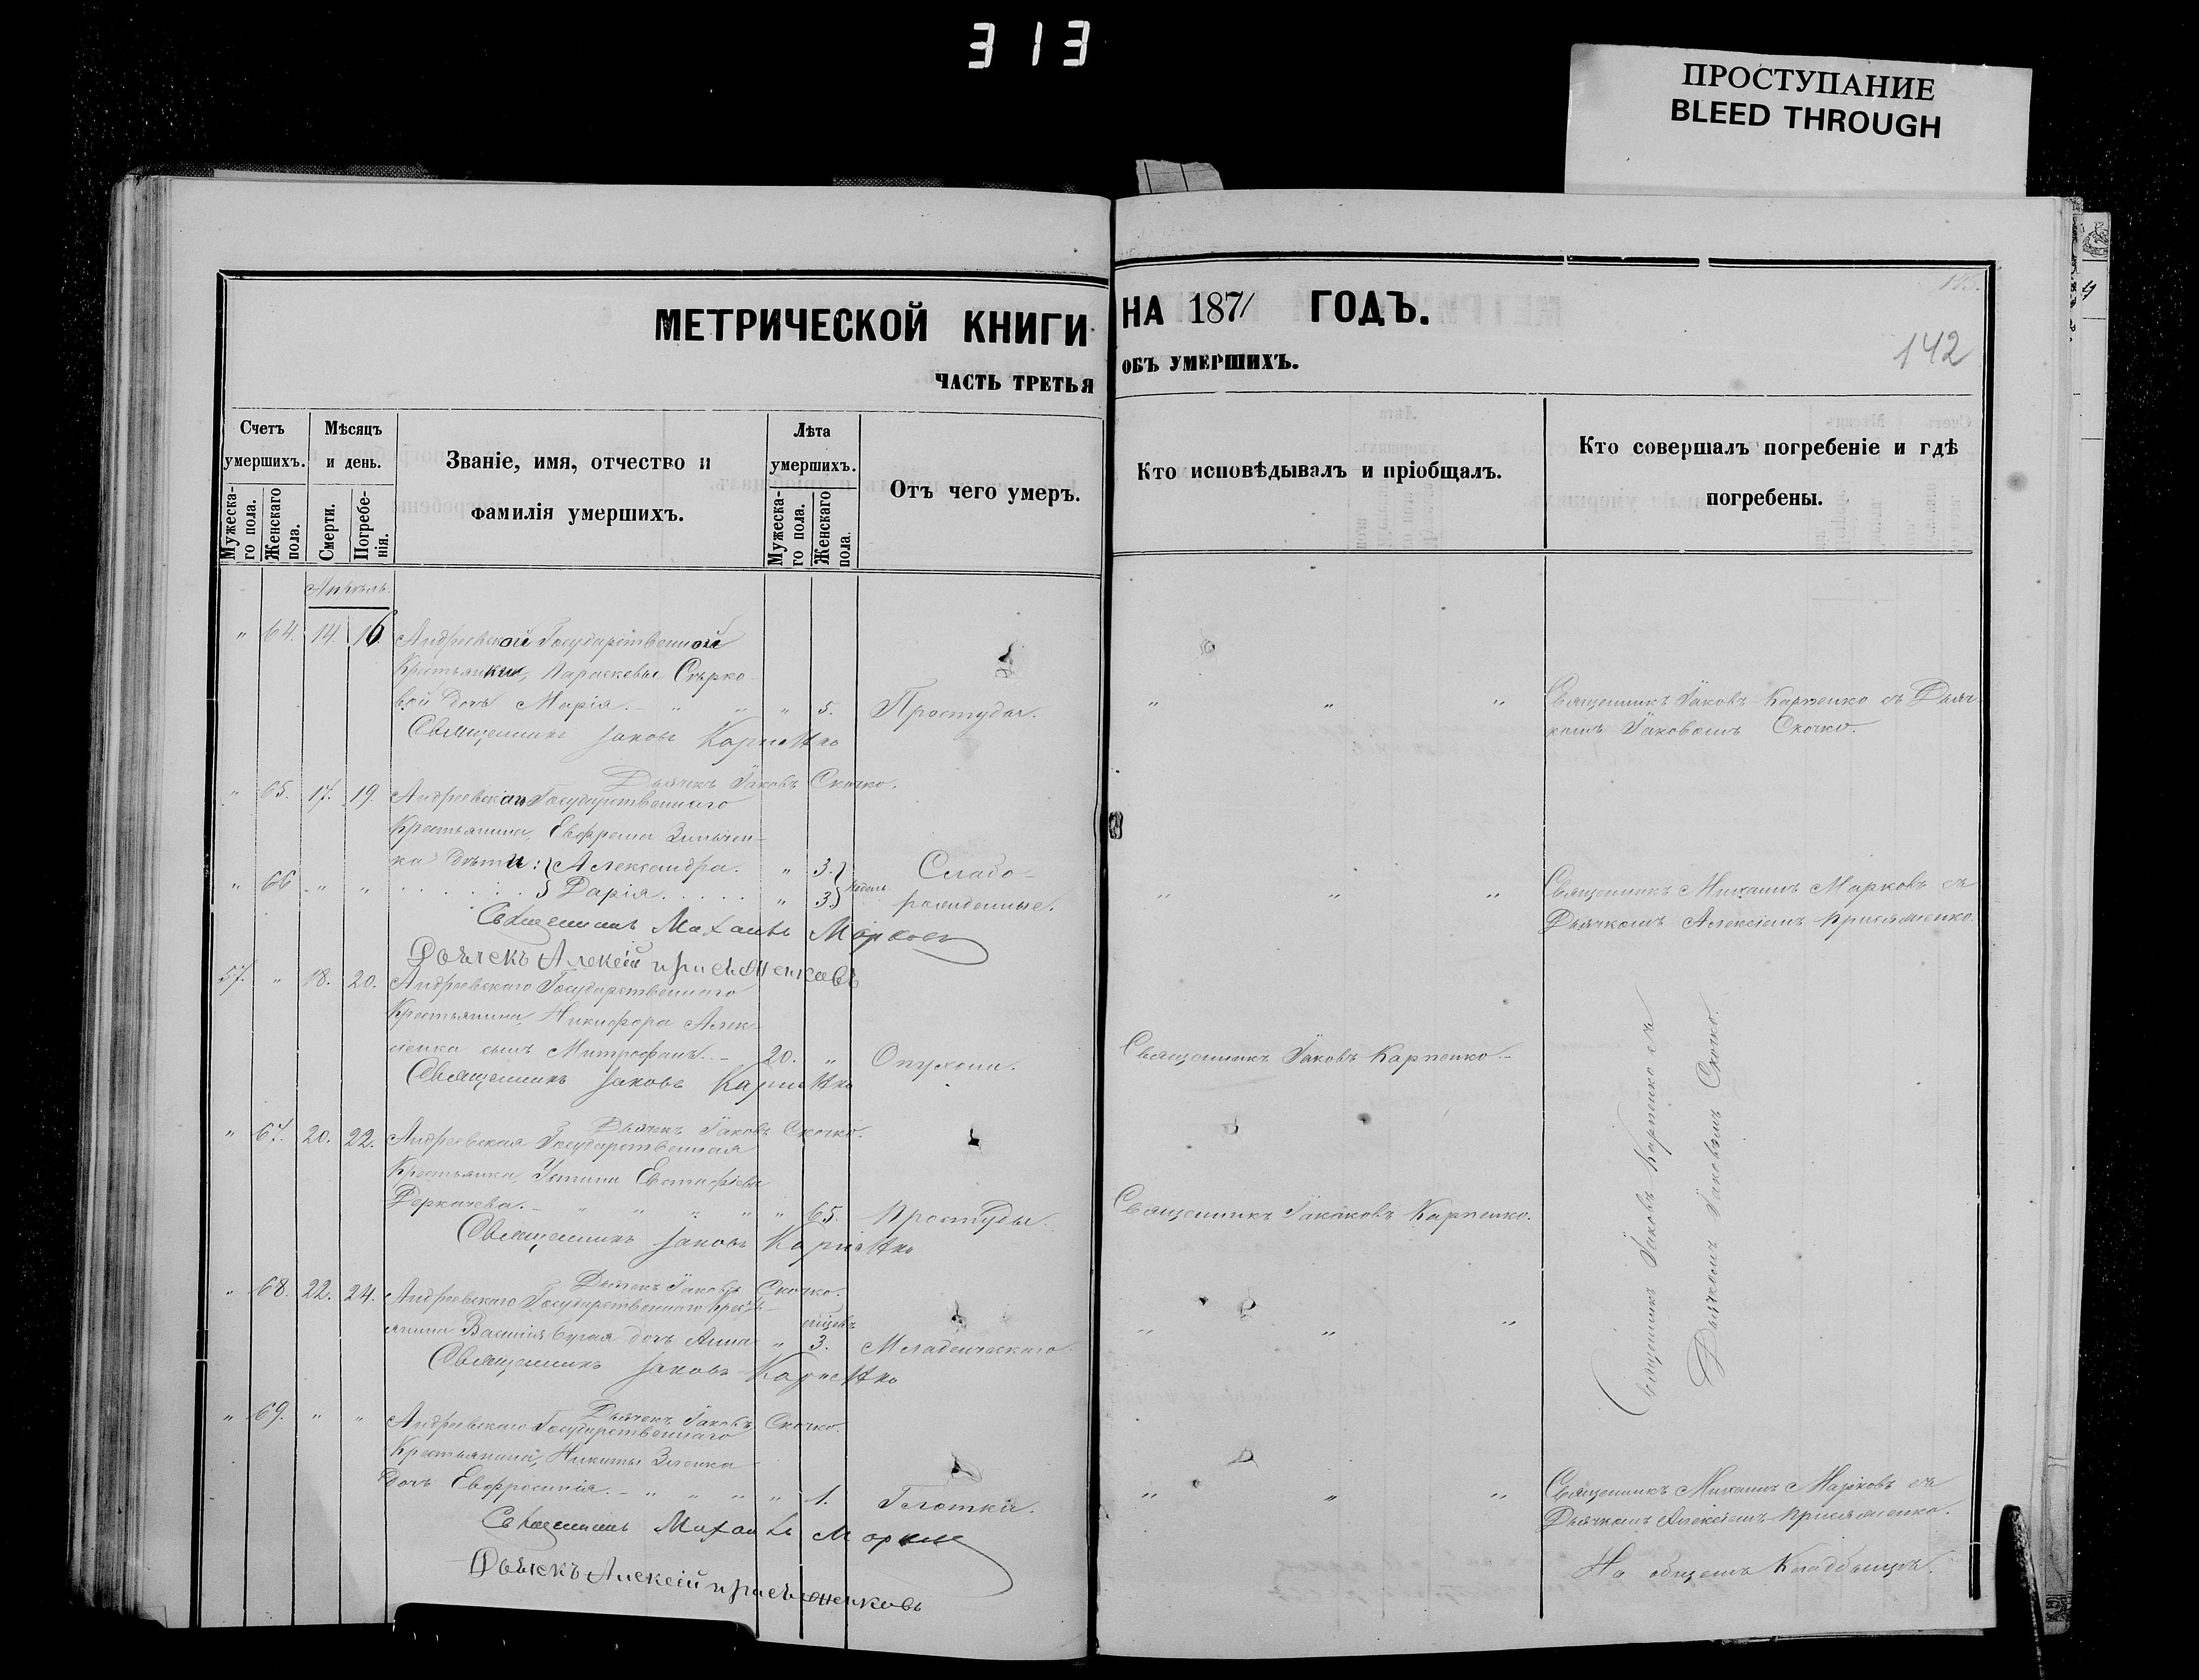 313
ПРОСТУПАНИЕ
BLEED THROUGH
МЕТРИЧЕСКОЙ КНИГИ НА 1871 ГОДЪ.
142
ЧАСТЬ ТРЕТЬЯ ОБЪ УМЕРШИХЪ.
Счетъ умершихъ.
Мужескаго пола.
Женскаго пола.
Мѣсяцъ и день.
Смерти.
Погребенія.
Званіе, имя, отчество и фамилія умершихъ.
Лѣта умершихъ.
Мужескаго пола.
Женскаго пола.
Отъ чего умеръ.
Кто исповѣдывалъ и пріобщалъ.
Кто совершалъ погребеніе и гдѣ погребены.
Апрѣль.
" 64. 14. 16. Андреевской Государственной
Крестьянки, Параскевы Сърко-
вой дочь Марія. " " " 5. Простуды. " " " Священникъ Іаковъ Карпенко съ Дьяч
комъ Іаковомъ Скочко.
Священникъ Іаковъ Карпенко
Дьячекъ Іаковъ Скочко.
" 65. 17. 19. Андреевскаго Государственнаго
Крестьянина, Евфрема Зинчен-
ка дѣти: Александра. " 3. Слабо-
" 66 " " Дарія. " 3. Недѣль рожденные. " " " Священникъ Михаилъ Марковъ съ
Дьячкомъ Алексіемъ Присяженко.
Священникъ Михаилъ Марковъ
Дьячекъ Алексій Присяженковъ
57. " 18. 20. Андреевскаго Государственнаго
Крестьянина, Никифора Алек-
сѣенка сынъ Митрофанъ. 20. " Опухоли. Священникъ Іаковъ Карпенко.
Священникъ Іаковъ Карпенко
Дьячекъ Іаковъ Скочко.
" 67. 20. 22. Андреевская Государственная
Крестьянка, Устина Евстафіева
Деркачева. " " " " " 65. Простуды. Священникъ Іакаковъ Карпенко.
Священникъ Іаковъ Карпенко
Дьячекъ Іаковъ Скочко.
" 68. 22. 24. Андреевскаго Государственнаго Кресть-
янина Василія Бугая дочь Анна " 3. Младенческаго " " "
Священникъ Іаковъ Карпенко
Дьячекъ Іаковъ Скочко.
Священникъ Іаковъ Карпенко съ
Дьячкомъ Іаковомъ Скочко.
" 69. " " Андреевскаго Государственнаго
Крестьянина, Никиты
дочь Евфросинія. " " " " 1. Глотки. " " " Священникъ Михаилъ Марковъ съ
Дьячкомъ Алексіемъ Присяженко.
Священникъ Михаилъ Марковъ
Дьячекъ Алексій Присяженковъ
На общемъ Кладбищѣ.